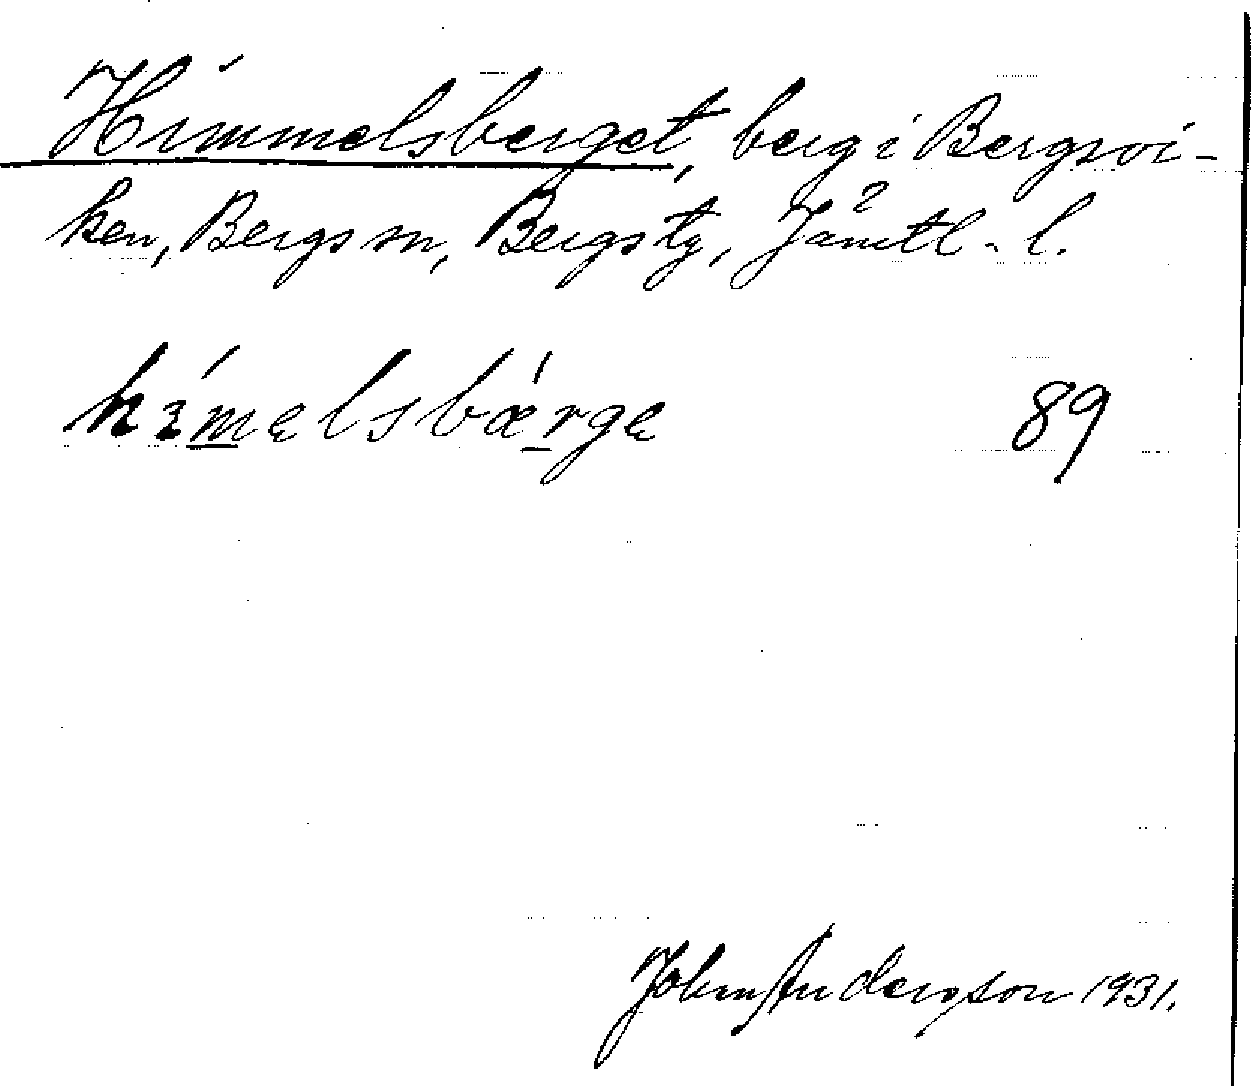 Himmelsberget, berg i Bergsvi-
ken, Bergs sn, Bergs tg, Jämtl. l.
hímelsbǽrge 89
John Andersson 1931.